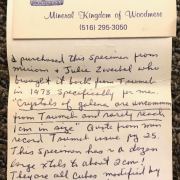 Mineral Kingdom of Woodmere
(516) 295-3050
I purchased this specimen from
Miriam & Julie Zweibel who
brought it back from Tsumeb
in 1973 Specifically for me.
"Crystals of galena are uncommon
from Tsumeb and rarely reach
1cm in size". Quote from min
record Tsumeb issue Pg 25.
This Specimen has a dozen
large xtals to about 2cm!
They are all Cubes modified by